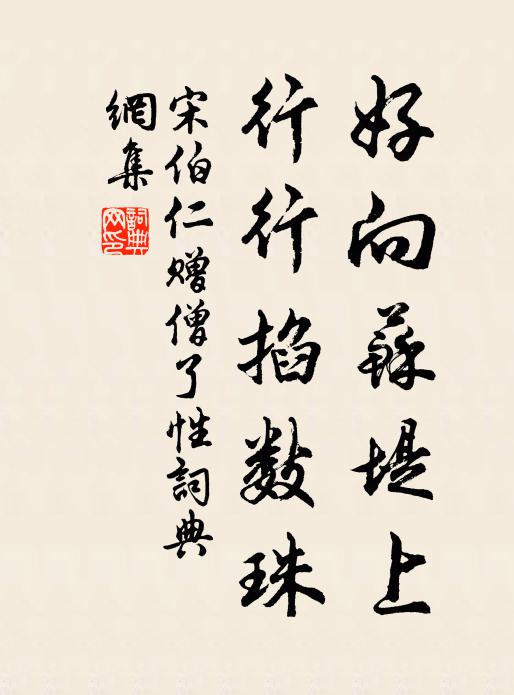 好向蘇堤上
行行掐数珠
宋伯仁赠僧了性詞典
網集
詞典
网印